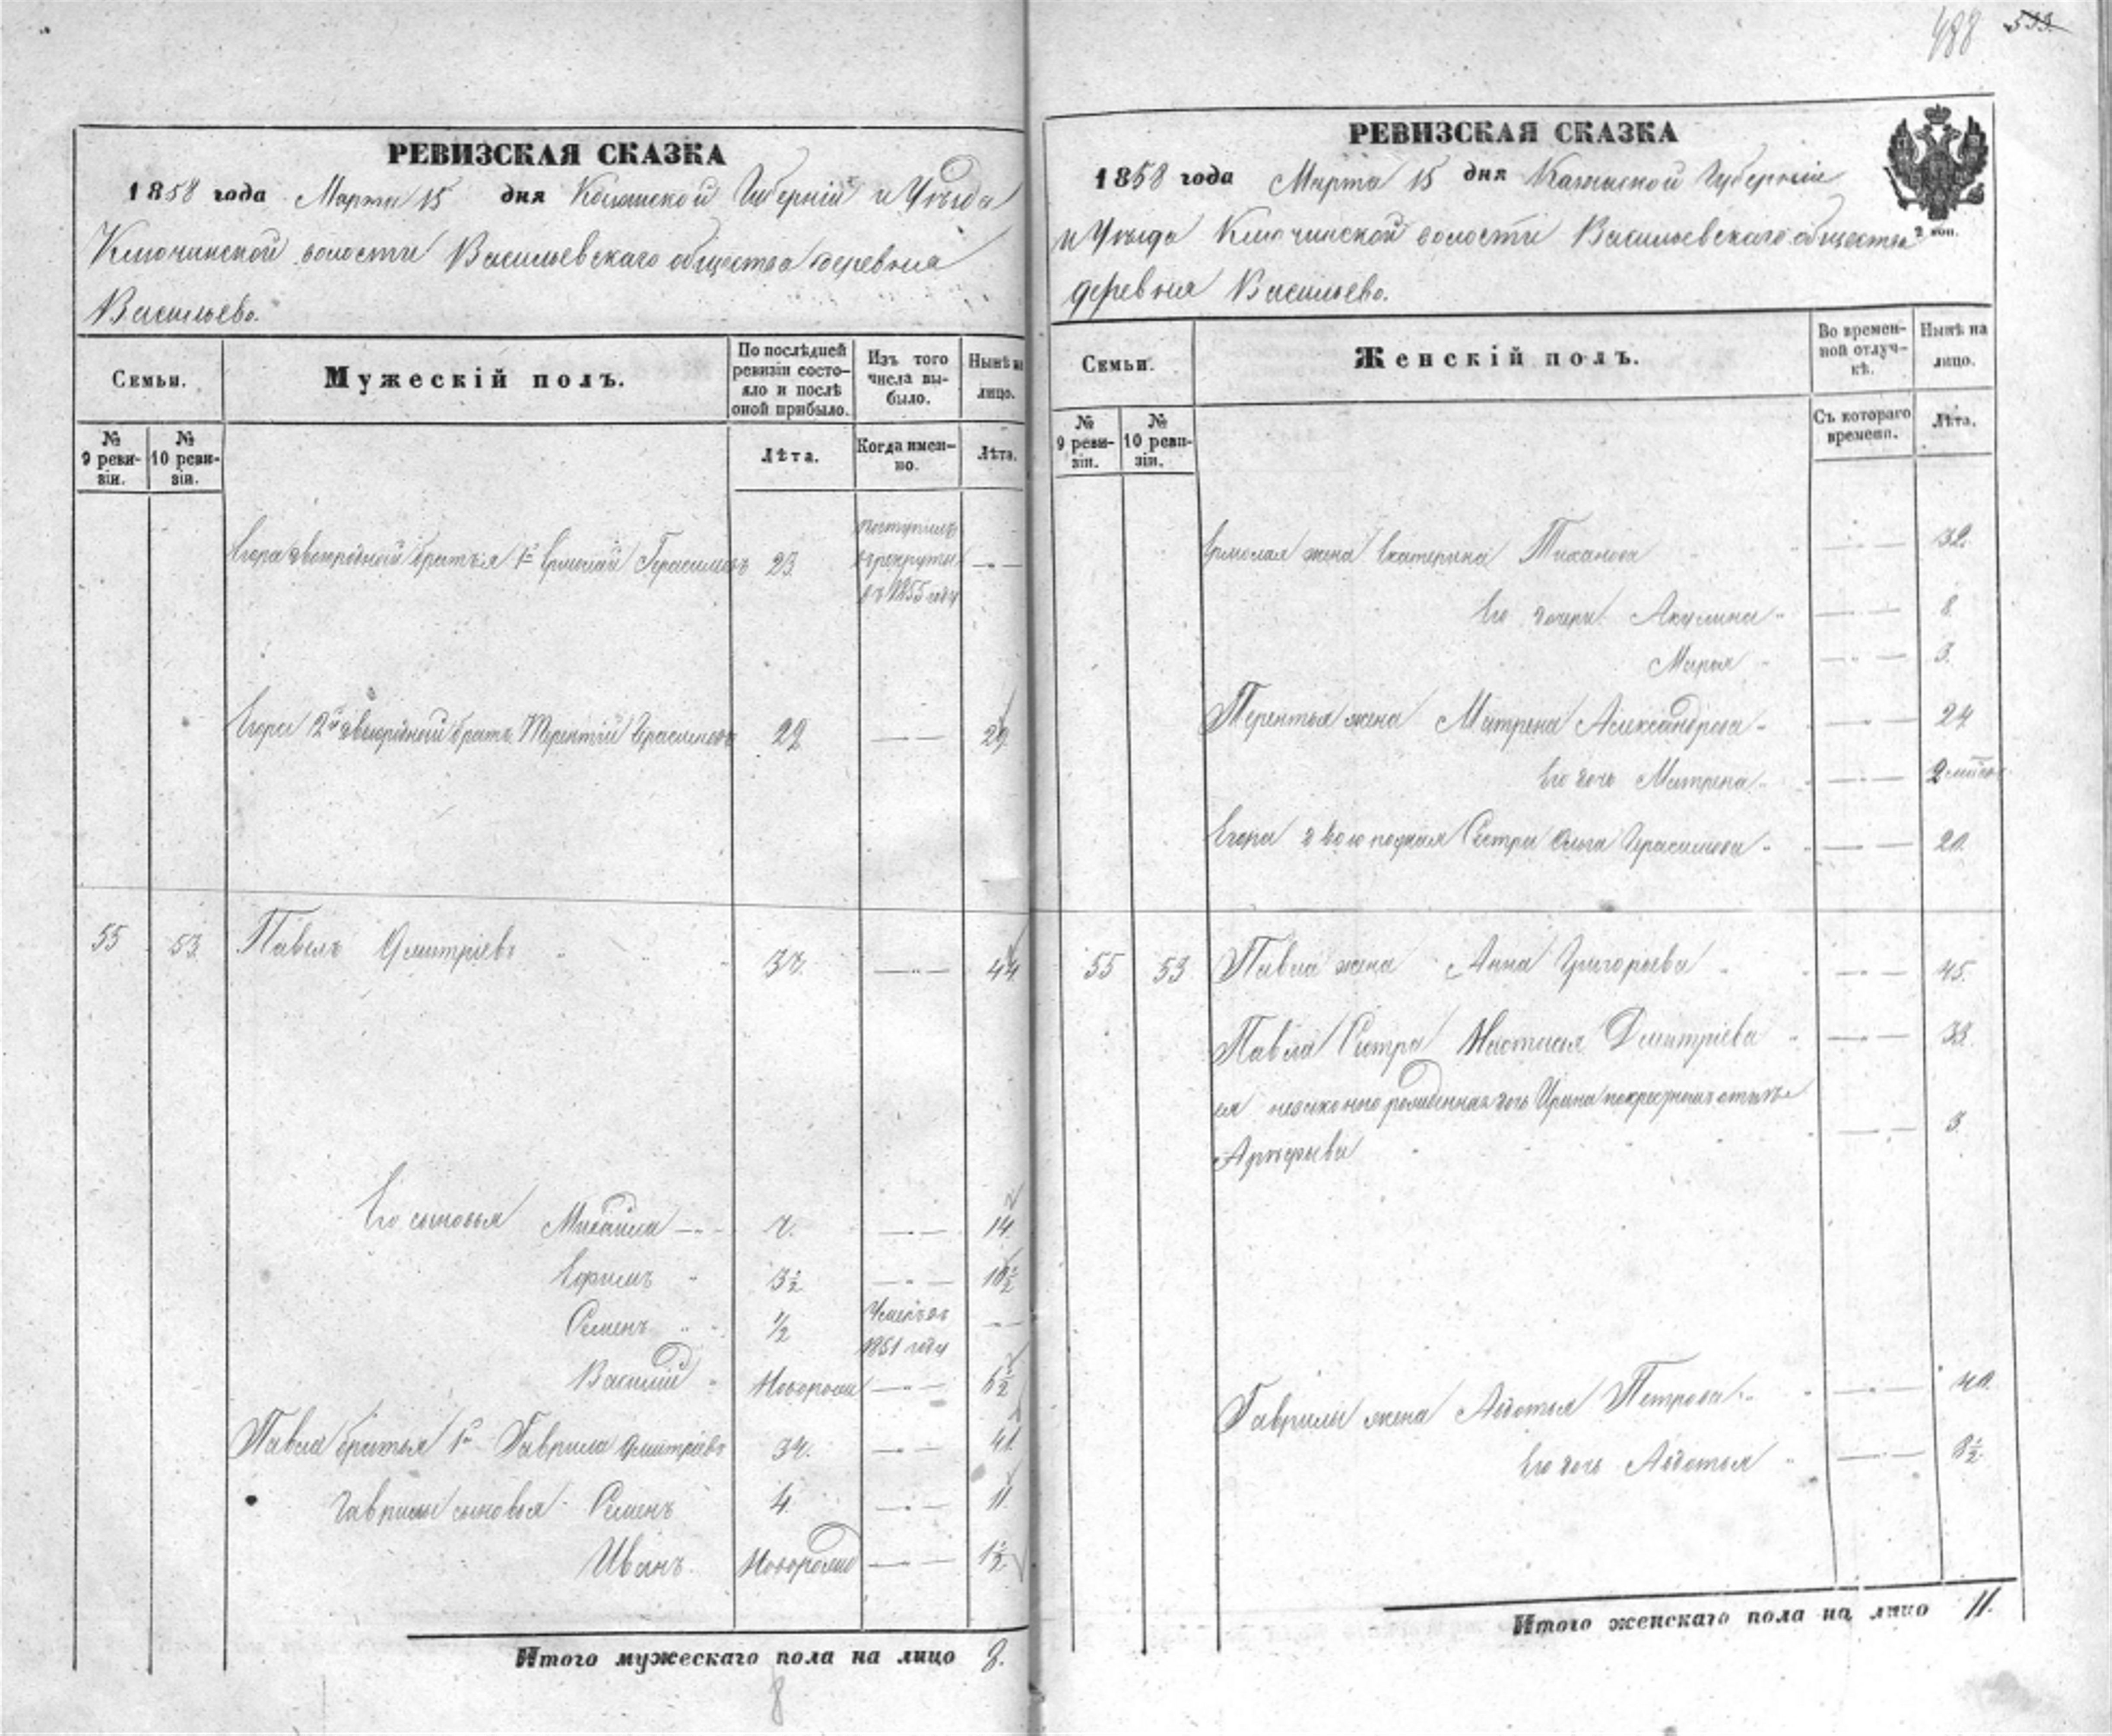 488 533.
РЕВИЗСКАЯ СКАЗКА
1858 года Марта 15 дня Казанской Губерніи и Уѣзда
Ключинской волости Васильевскаго общества деревня
Васильево.
Семьи.
Мужескій полъ.
По послѣдней ревизіи состояло и послѣ оной прибыло.
Изъ того числа выбыло.
Нынѣ на лицо.
№ 9 ревизіи.
№ 10 ревизіи.
Лѣта.
Когда именно.
Лѣта.
Егора двоюродной братья 1й Ермолай Герасимовъ 23 поступилъ въ рекруты въ 1855 году
Егора 2й двоюродной братъ Терентій Герасимовъ 22 29
55 53. Павелъ Дмитріевъ 37. 44
Его сыновья Михаила 7. 14.
Ефимъ 3½ 10½
Семенъ ½ Умеръ въ 1851 году
Василій Новорож 6½
Павла братья 1й Гаврила Дмитріевъ 34. 41.
Гаврилы сыновья Семенъ 4. 11.
Иванъ Новорожд 1½
Итого мужескаго пола на лицо 8.
8
РЕВИЗСКАЯ СКАЗКА
1858 года Марта 15 дня Казанской Губерніи
и Уѣзда Ключинской волости Васильевскаго общества
2 коп.
деревня Васильево.
Семьи.
Женскій полъ.
Во временной отлучкѣ.
Нынѣ на лицо.
№ 9 ревизіи.
№ 10 ревизіи.
Съ котораго времени.
Лѣта.
Ермолая жена Екатерина Тиханова 32.
Его дочери Акулина 8
Марья 3.
Терентья жена Матрена Александрова 24
Его дочь Матрена 2
Егора двоюродная Сестра Ольга Герасимова 20.
55 53 Павла жена Анна Григорьева 45.
Павла Сестра Настасья Дмитріева 33.
ея незаконно рожденная дочь Ирина по крестномъ отцѣ
3.
Гаврилы жена Авдотья Петрова 40.
Его дочь Авдотья 8½
Итого женскаго пола на лицо 11.